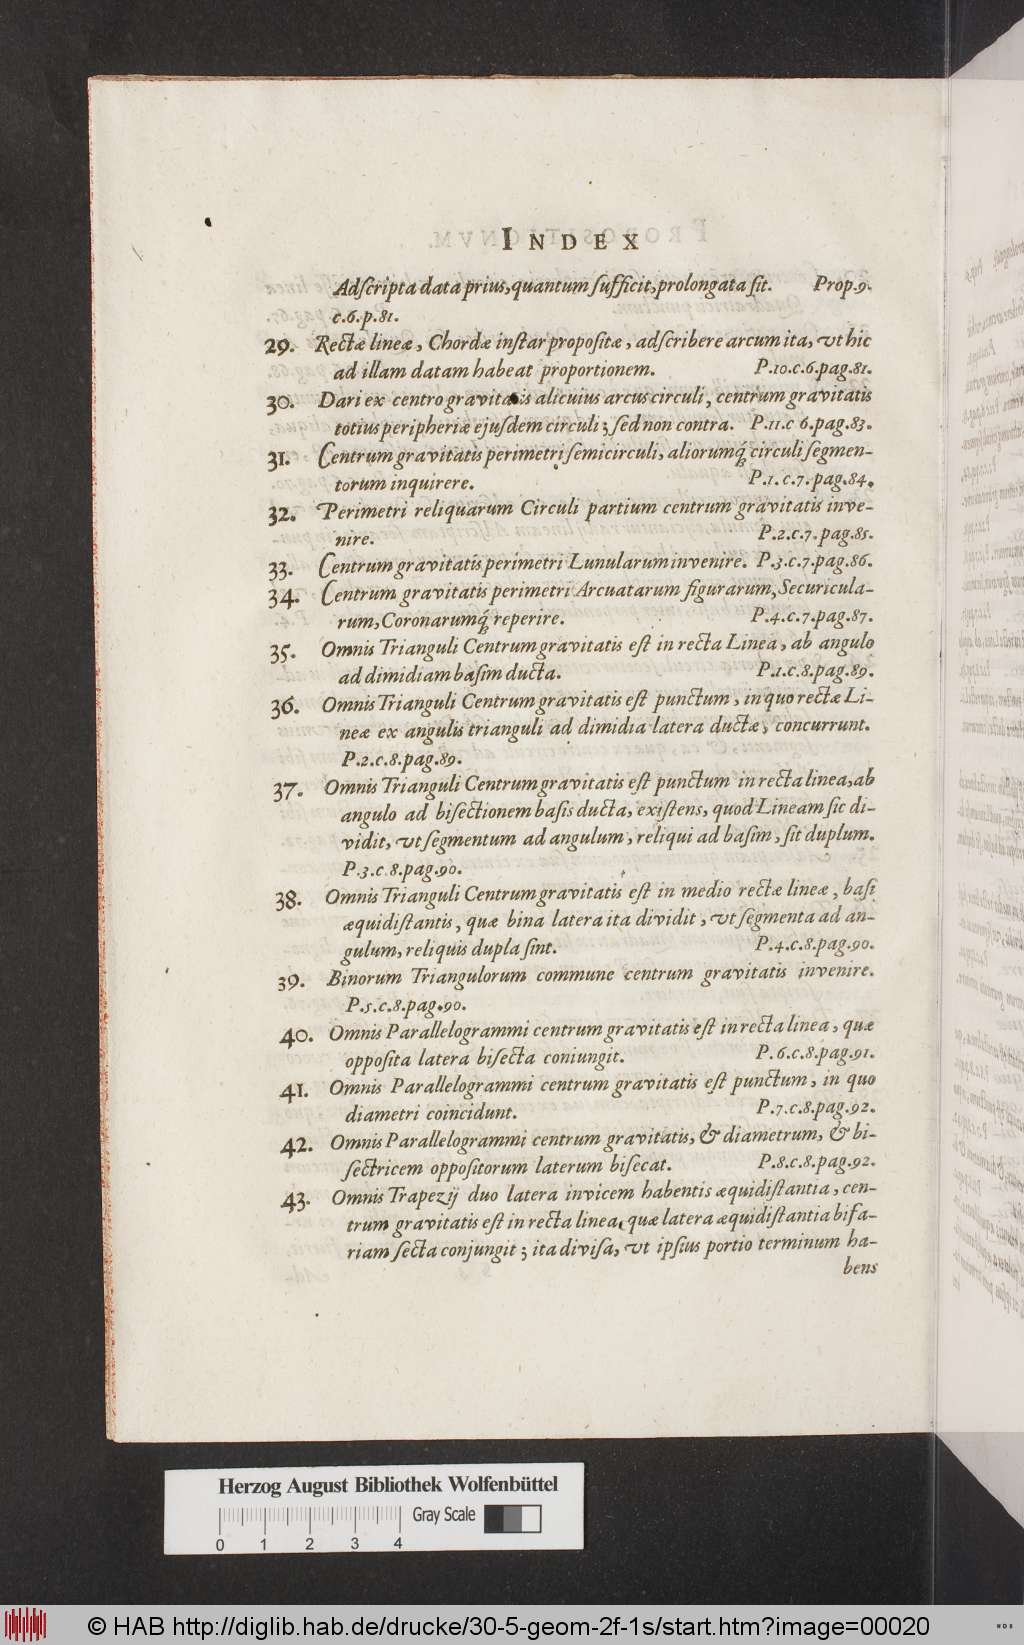 INDEX
Adſcripta data prius, quantum ſufficit, prolongata ſit. Prop.9.
c.6.p.81.
29. Rectæ lineæ, Chordæ inſtar propoſitæ, adſcribere arcum ita, vt hic
ad illam datam habeat proportionem. P.10.c.6.pag.81.
30. Dari ex centro gravitatis alicuius arcus circuli, centrum gravitatis
totius peripheriæ ejuſdem circuli; ſed non contra. P.11.c 6.pag.83.
31. Centrum gravitatis perimetri ſemicirculi, aliorumq́; circuli ſegmen-
torum inquirere. P.1.c.7.pag.84.
32. Perimetri reliquarum Circuli partium centrum gravitatis inve-
nire. P.2.c.7.pag.85.
33. Centrum gravitatis perimetri Lunularum invenire. P.3.c.7.pag.86.
34. Centrum gravitatis perimetri Arcuatarum figurarum, Securicula-
rum, Coronarumq́; reperire. P.4.c.7.pag.87.
35. Omnis Trianguli Centrum gravitatis eſt in recta Linea, ab angulo
ad dimidiam baſim ducta. P.1.c.8.pag.89.
36. Omnis Trianguli Centrum gravitatis eſt punctum, in quo rectæ Li-
neæ ex angulis trianguli ad dimidia latera ductæ, concurrunt.
P.2.c.8.pag.89.
37. Omnis Trianguli Centrum gravitatis eſt punctum in recta linea, ab
angulo ad biſectionem baſis ducta, exiſtens, quod Lineam ſic di-
vidit, vt ſegmentum ad angulum, reliqui ad baſim, ſit duplum.
P.3.c.8.pag.90.
38. Omnis Trianguli Centrum gravitatis eſt in medio rectæ lineæ, baſi
æquidiſtantis, quæ bina latera ita dividit, vt ſegmenta ad an-
gulum, reliquis dupla ſint. P.4.c.8.pag.90.
39. Binorum Triangulorum commune centrum gravitatis invenire.
P.5.c.8.pag.90.
40. Omnis Parallelogrammi centrum gravitatis eſt in recta linea, quæ
oppoſita latera biſecta coniungit. P.6.c.8.pag.91.
41. Omnis Parallelogrammi centrum gravitatis eſt punctum, in quo
diametri coincidunt. P.7.c.8.pag.92.
42. Omnis Parallelogrammi centrum gravitatis, & diametrum, & bi-
ſectricem oppoſitorum laterum biſecat. P.8.c.8.pag.92.
43. Omnis Trapezij duo latera invicem habentis æquidiſtantia, cen-
trum gravitatis eſt in recta linea, quæ latera æquidiſtantia bifa-
riam ſecta conjungit; ita diviſa, vt ipſius portio terminum ha-
bens
Herzog August Bibliothek Wolfenbüttel
Gray Scale
0 1 2 3 4
© HAB http://diglib.hab.de/drucke/30-5-geom-2f-1s/start.htm?image=00020